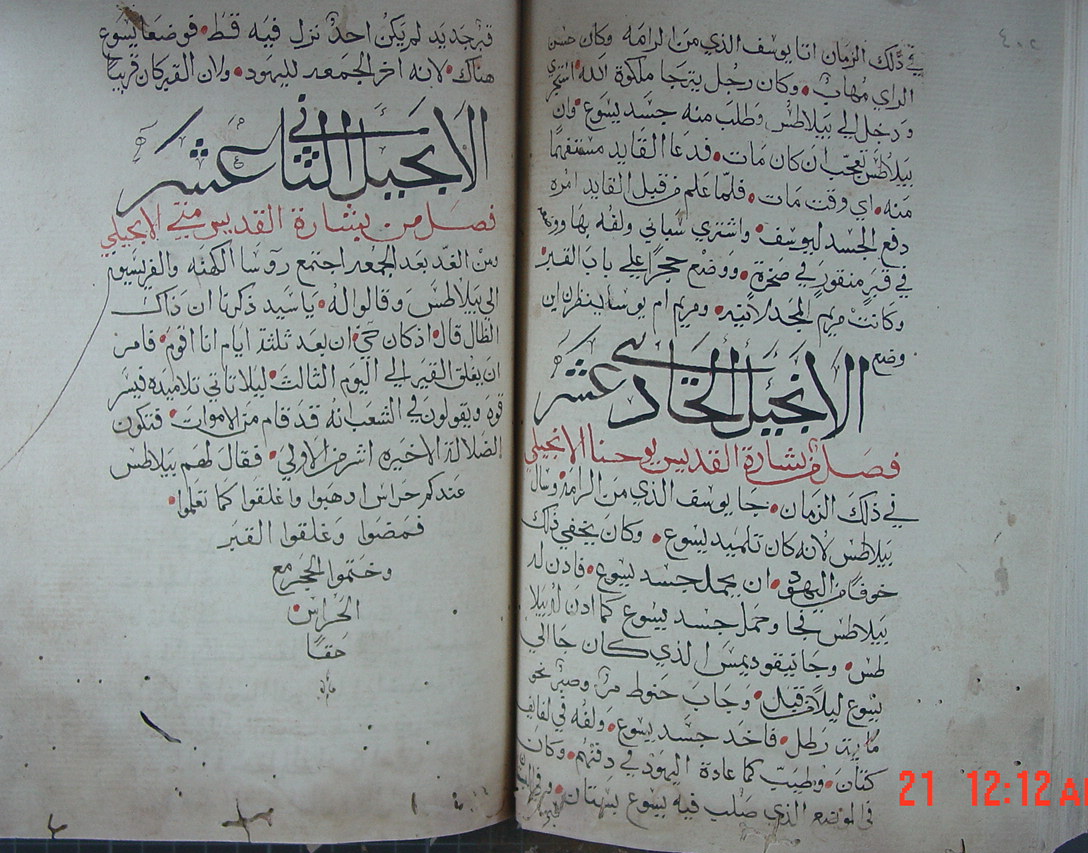 في ذلك الزمان اتا يوسف الذي من الرامه وكان حسن
الراي مهاب وكان رجل يترجا ملكوة الله استجرى
ودخل الى بيلاطس وطلب منه جسد يسوع وان
بيلاطس تعجب ان كان مات فدعا القايد مستفهما
منه اي وقت مات فلما علم من قبل القايد امره
دفع الجسد ليوسف واشترى سباني ولفه بها ووضعه
في قبر منقور في صخرة ووضع حجرا على باب القبر
وكانت مريم المجدلانيه ومريم ام يوسا ينظرن اين
وضع
الانجيل الحادي عشر
فصل من بشارة القديس يوحنا الانجيلي
في ذلك الزمان جا يوسف الذي من الرامه وسال
بيلاطس لانه كان تلميد ليسوع وكان يخفي ذلك
خوفا من اليهود ان يحمل جسد يسوع فادن له
بيلاطس فجا وحمل جسد يسوع كما ادن له بيلا
طس وجا نيقوديمس الذي كان جا الى
يسوع ليلا من قبل وجاب حنوط مر وصبر نحو
مايت رطل فاخد جسد يسوع ولفه في لفايف
كتان وطيب كما عادة اليهود في دفنهم وكان
في الموضع الذي صلب فيه يسوع بستان وفي البستان
قبر جديد لم يكن احد نزل فيه قط فوضعا يسوع
هناك لانه اخر الجمعه لليهود ولان القبر كان قريبا
الانجيل الثاني عشر
فصل من بشارة القديس متى الانجيلي
ومن الغد بعد الجمعه اجتمع روسا الكهنه والفريسيون
الى بيلاطس وقالوا له يا سيد ذكرنا ان ذاك
الظال قال اذ كان حي ان بعد ثلثة ايام انا اقوم فامر
ان يغلق القبر الى اليوم الثالث ليلا تاتي تلاميده فيسر
قوه ويقولون في الشعب انه قد قام من الاموات فتكون
الضلالة الاخيره اشر من الاولى فقال لهم بيلاطس
عندكم حراس ادهبوا واغلقوا كما تعلموا
فمضوا وغلقوا القبر
وختموا الحجر مع
الحراس
حقا
21 12:12 AM